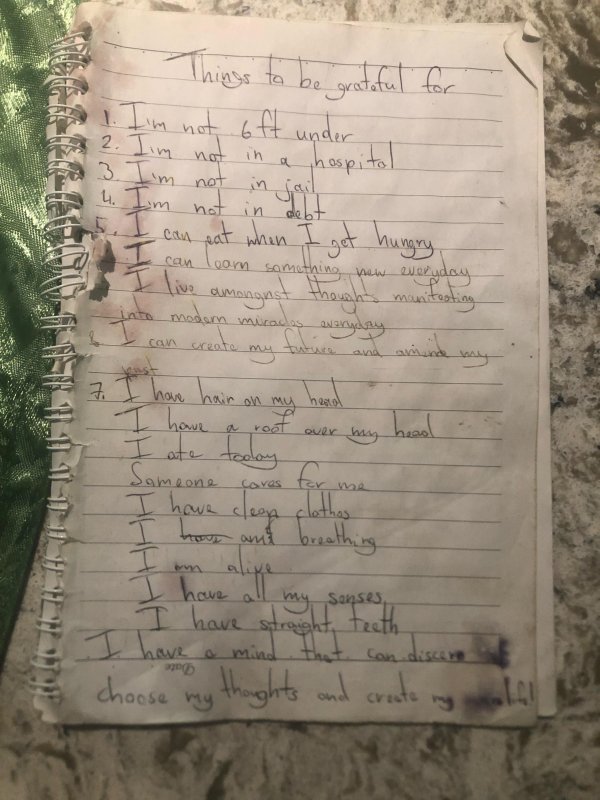 Things to be grateful for
1. I'm not 6ft under
2. I'm not in a hospital
3 I'm not in jail
4. I'm not in debt
5. I can eat when I get hungry
I can learn something new everyday
I live amongnst thoughts manifesting
into modern muracles everyday
I can create my future and my
past
7. I have hair on my head
I have a roof over my head
I ate today
Someone cares for me
I have clean clothes
I have am breathing
I am alive
I have all my senses
I have straight teeth
I have a mind that can
Date
choose my thoughts and create my